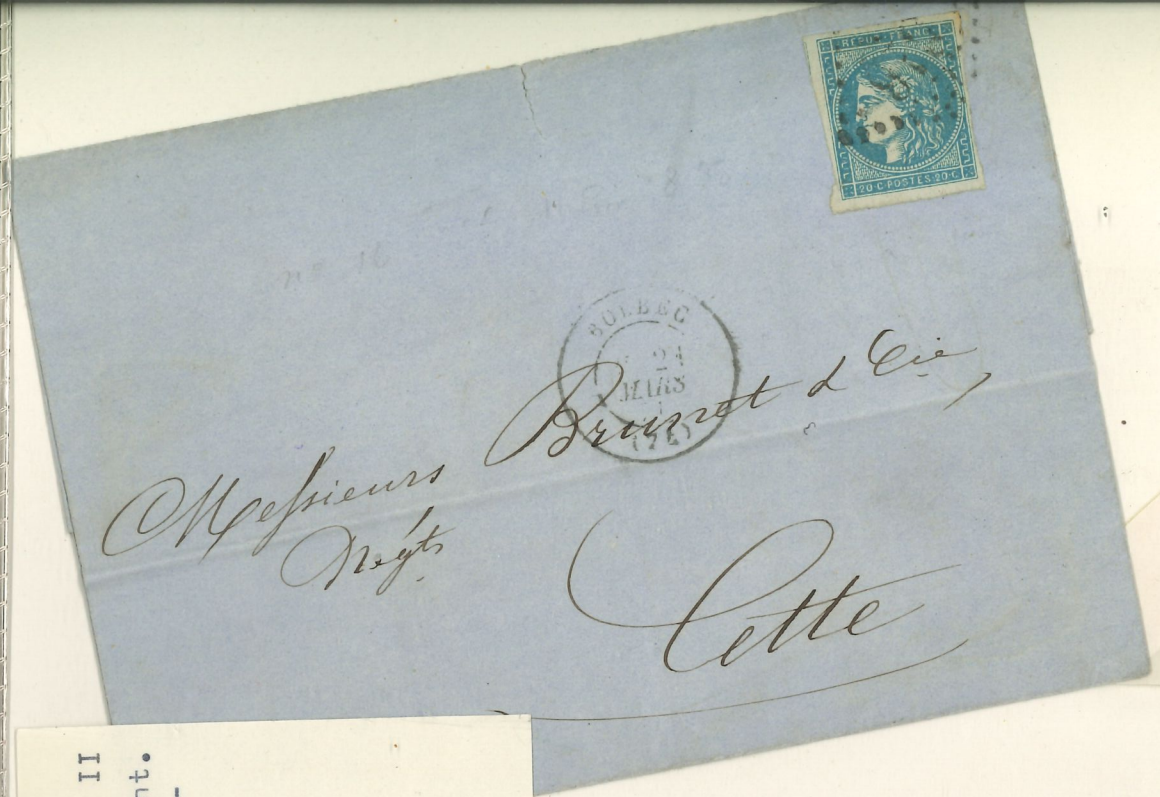 REPUB. FRANC.
20·C·POSTES·20·C
BOLBEC
21
MARS
(74)
Messieurs Brunet & Cie,
Négts
Cette
II
nt.